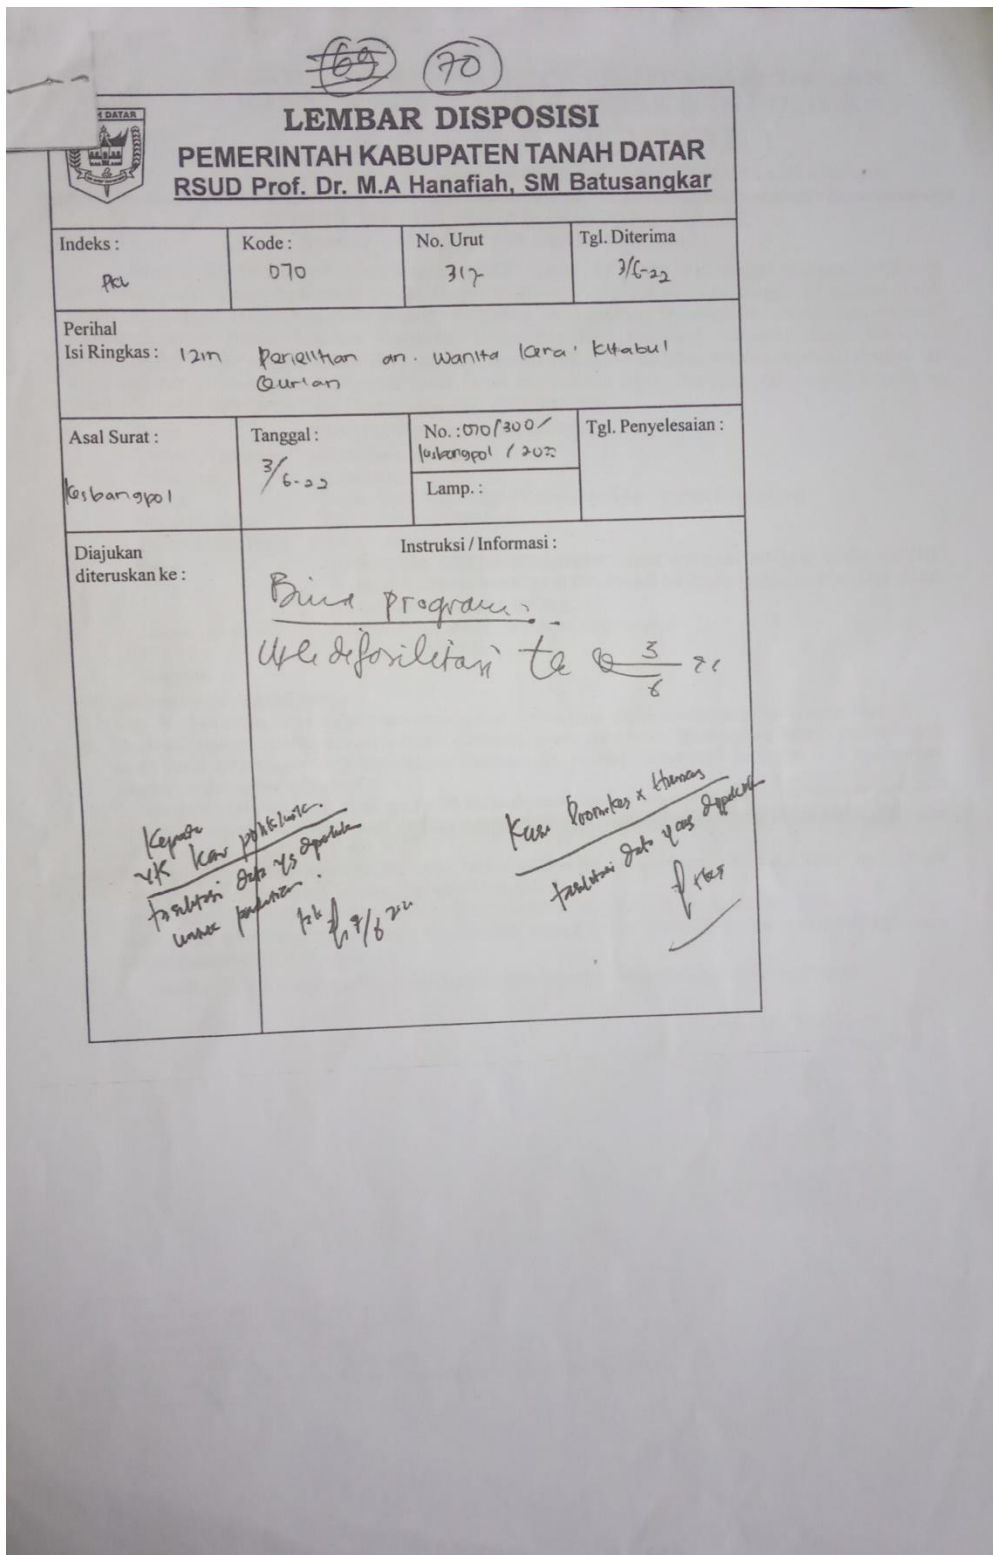 69 70
H DATAR
LEMBAR DISPOSISI
PEMERINTAH KABUPATEN TANAH DATAR
RSUD Prof. Dr. M.A Hanafiah, SM Batusangkar
Indeks :
PKL
Kode :
070
No. Urut
317
Tgl. Diterima
3/6-22
Perihal
Isi Ringkas : Izin Penelitian an. Wanita Kitabul
Qur'an
Asal Surat :
Kesbangpol
Tanggal :
3/6-22
No. : 070/300/
kesbangpol / 2022
Lamp. :
Tgl. Penyelesaian :
Diajukan
diteruskan ke :
Instruksi / Informasi :
Bina program
difasilitasi 3/6
Kepada
YK poliklinik
fasilitasi data yg diperlukan
penelitian
7/6
Promkes Humas
fasilitasi data yang diperlukan